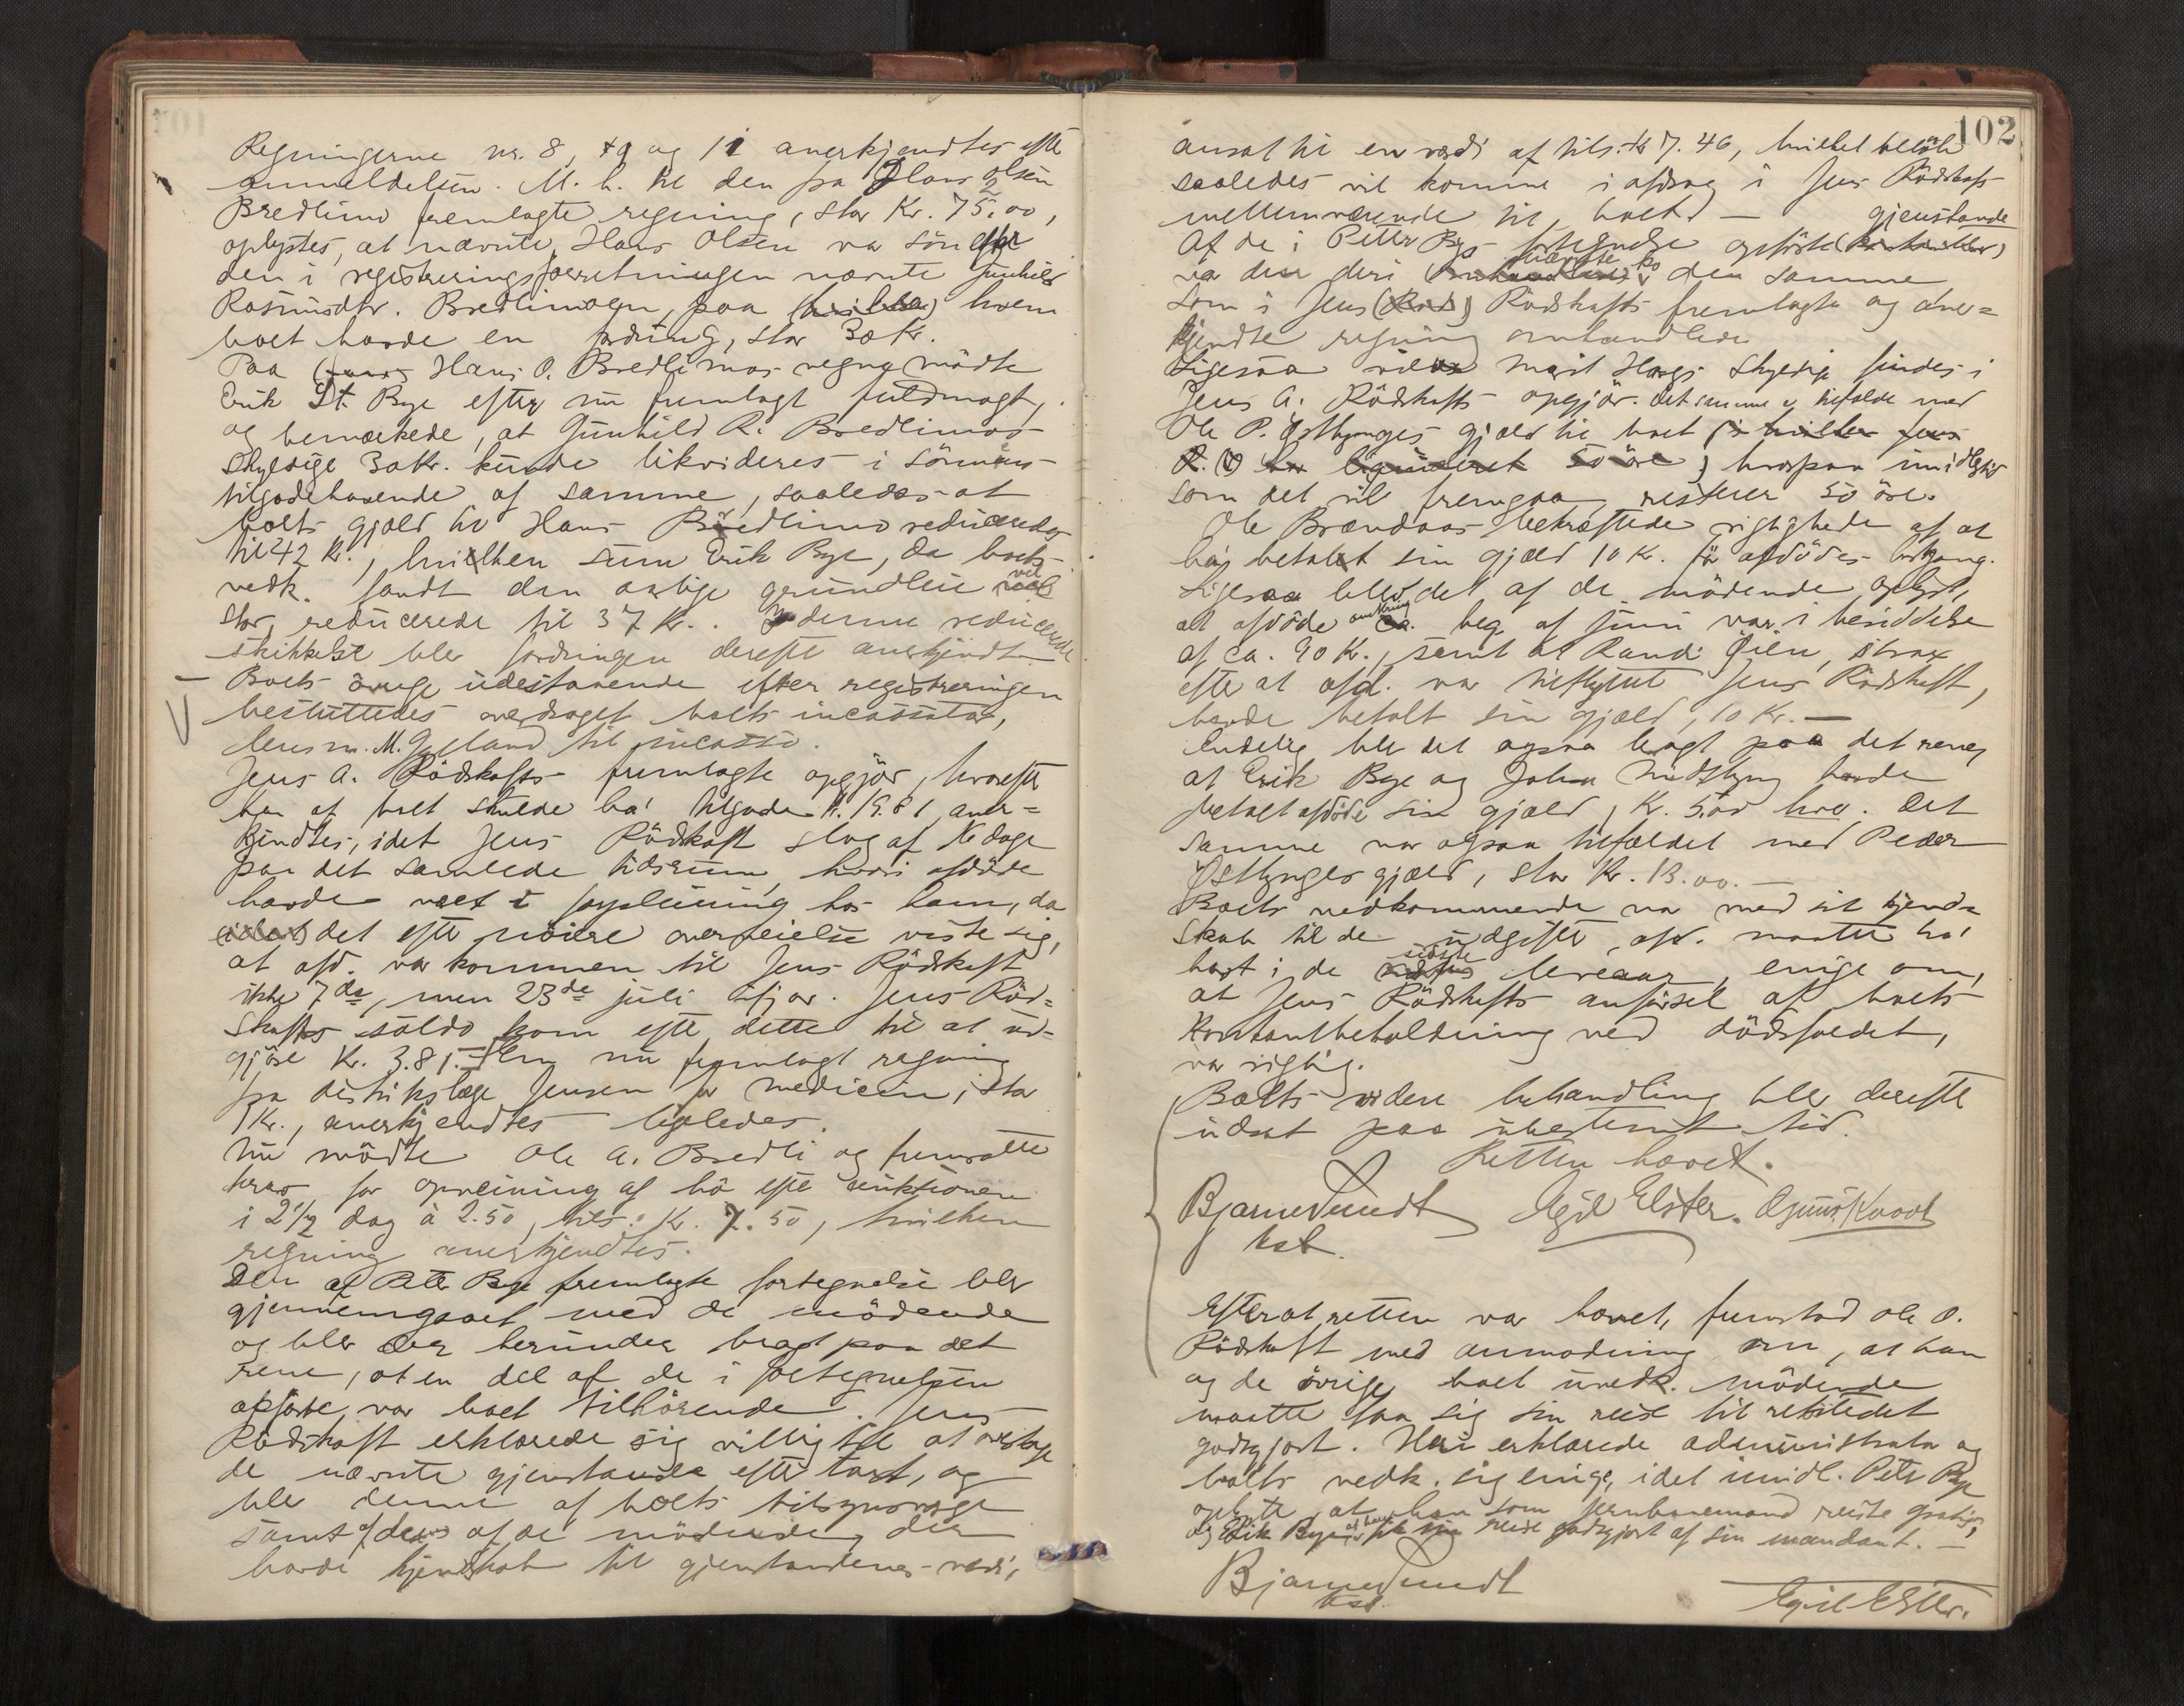 Regningerne nr. 8, 9 og 11 anerkjendtes efter
anmeldelsen. M. h. til den fra Hans Olsen
Bredlimo fremlagte regning, stor Kr. 72.00,
oplystes, at nævnte Hans Olsen var sön af
den i registreringsforretningen nævnte Gunhild
Rasmusdtr. Bredlimoen, paa (hvilken) hvem
boet havde en fordring, stor 30 Kr.
Paa Hans O. Bredlimos vegne mödte
Erik St. Bye efter nu fremlagt fuldmagt,
og bemærkede, at Gunhild R. Bredlimos
skyldige 30 Kr. kunde likvideres i sönnens
tilgodehavende af samme, saaledes at
boets gjæld til Hans Bredlimo reduceredes
til 42 Kr., hvilken sum Erik Bye, da boets
vedk. fandt den aarlige grundleie vel
stor, reducerede til 37 Kr. I denne reducerede
skikkelse blev fordringen derefter anerkjendt.
Boets övrige udestaaende efter registreringen
besluttedes overdraget boets incassator,
lensm. M. Gjelland til incasso.
Jens A. Rödskafts fremlagte opgjör, hvorefter
han af boet skulde ha' tilgode Kr. 19.81, aner=
kjendtes, idet Jens Rödskaft slog af 16 dage
paa det samlede tidsrum, hvori afdöde
havde været i forpleining hos ham, da
(idet) det efter nöiere overveielse viste sig,
at afd. var kommen til Jens Rödskaft
ikke 7de, men 23de juli ifjor. Jens Röd=
skafts saldo kom efter dette til at ud=
gjöre Kr. 3.81. En nu fremlagt regning
fra distriktslæge Jensen for medicin, stor
1 Kr., anerkjendtes ligeledes.
Nu mödte Ole A. Bredli og fremsatte
krav for opveining af hö efter auktionen
i 2 1/2 dag à 2.50, tils. Kr. 7.50, hvilken
regning anerkjendtes.
Den af Peter Bye fremlagte fortegnelse blev
gjennemgaaet med de mödende
og blev der herunder bragt paa det
rene, at en del af de i fortegnelsen
opförte var boet tilhörende. Jens
Rödskaft erklærede sig villig til at overtage
de nævnte gjenstande efter taxt, og
blev denne af boets tilsynsverge
samt af dem af de mödende, der
havde kjendskab til gjenstandenes værdi,
102
ansat til en værdi af tils. Kr 7.46, hvilket belöb
saaledes vil komme i afdrag i Jens Rödskafts
mellemværende til boet. —
Af de i Petter Byes fortegnelse opförte gjenstande
var den deri nævnte ko den samme
som i Jens (Röd) Rödskafts fremlagte og aner=
kjendte regning omhandlede.
Ligesaa Marit Haugs skyldige findes i
Jens A. Rödskafts opgjör. Det samme er tilfælde med
Ole P. Östlynges gjæld til boet (i hvilken Jens
R. har liqvideret 50 öre) hvorpaa imidlertid
som det vil fremgaa, resterer 50 öre.
Ole Brændaas bekræftede rigtigheden af at
ha' betalt sin gjæld 10 Kr. för afdödes bortgang.
Ligesaa blev det af de mödende oplyst,
at afdöde omkring beg. af juni var i besiddelse
af ca. 90 Kr., samt at Randi Öien, strax
efter at afd. var tilflyttet Jens Rödskaft,
havde betalt sin gjæld, 10 Kr. —
Endelig blev det ogsaa bragt paa det rene,
at Erik Bye og John Midtlyng havde
betalt afdöde sin gjæld, Kr. 5.00 hver. Det
samme var ogsaa tilfældet med Peder
Östlynges gjæld, stor Kr. 13.00. —
Boets vedkommende var med sit kjend=
skab til de udgifter, afd. maatte ha'
havt i de sidste leveaar, enige om,
at Jens Rödskafts anförsel af boets
kontantbeholdning ved dödsfaldet,
var rigtig.
Boets videre behandling blev derefter
udsat paa ubestemt tid.
Retten hævet.
Bjarne Sundt Egil Elster. Ogmund Kvaal
kst.
Efterat retten var hævet, fremstod Ole O.
Rödskaft med anmodning om, at han
og de övrige boet uvedk. mödende
maatte faa sig sin reise til retstedet
godtgjort. Heri erklærede administrator og
boets vedk. sig enige, idet imidl. Peter Bye
oplyste, at han som jernbanemand reiste gratis,
og Erik Bye at han fik sin reise godtgjort af sin mandant. —
Bjarne Sundt
kst.
Egil Elster.